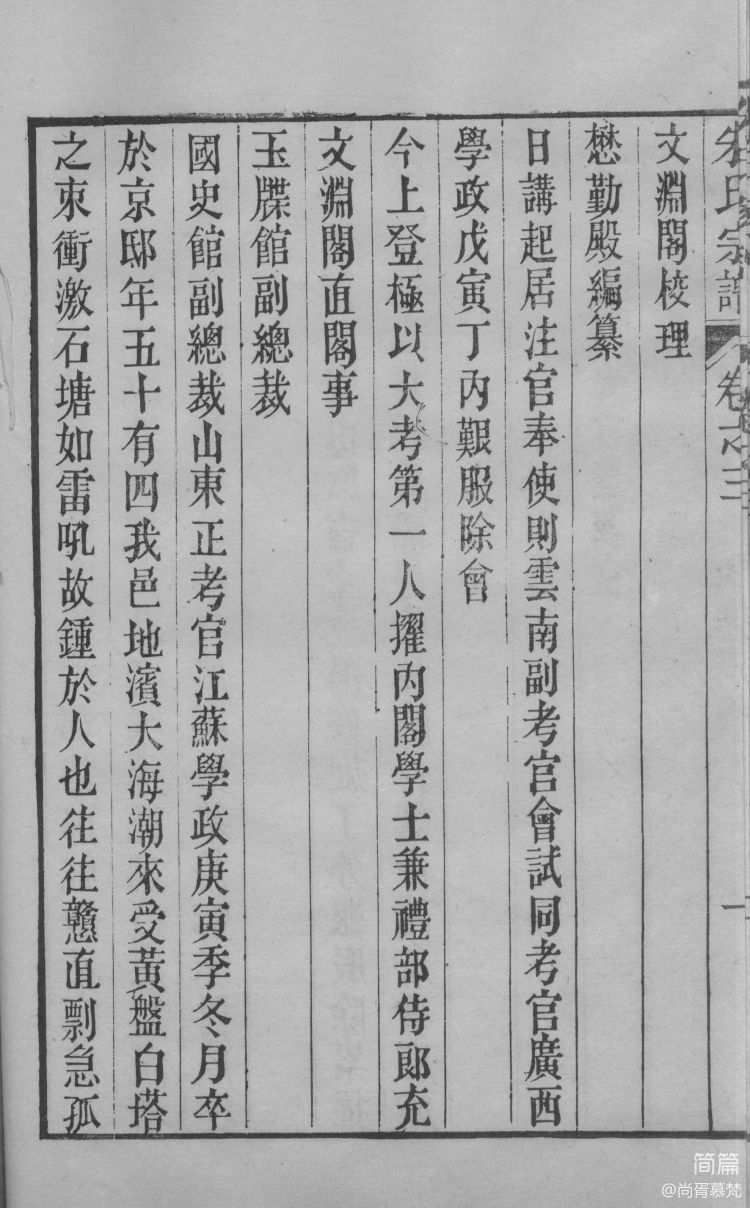 朱氏宗譜 卷之三 一
文淵閣校理
懋勤殿編纂
日講起居注官奉使則雲南副考官會試同考官廣西
學政戊寅丁內艱服除會
今上登極以大考第一人擢內閣學士兼禮部侍郎充
文淵閣直閣事
玉牒館副總裁
國史館副總裁山東正考官江蘇學政庚寅季冬月卒
於京邸年五十有四我邑地濱大海潮來受黃盤白塔
之束衝激石塘如雷吼故鍾於人也往往戇直剽急孤
简篇
@尚胥慕梵